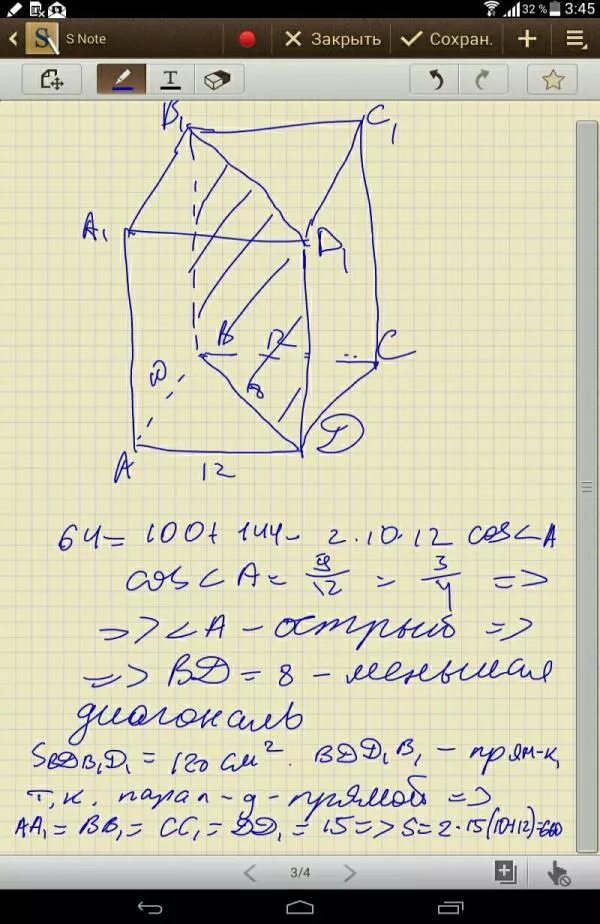 32 % 3:45
S Note Закрыть Сохран.
T
B₁ C₁
A₁ D₁
B 12 C
10 8
A 12 D
64 = 100 + 144 - 2·10·12 cos<A
cos<A = 9/12 = 3/4 =>
=> <A - острый =>
=> BD = 8 - меньшая
диагональ
SBDB₁D₁ = 120 см². BDD₁B₁ - прям-к,
т.к. парал-д - прямой =>
AA₁ = BB₁ = CC₁ = DD₁ = 15 => S = 2·15(10+12) = 660
3/4